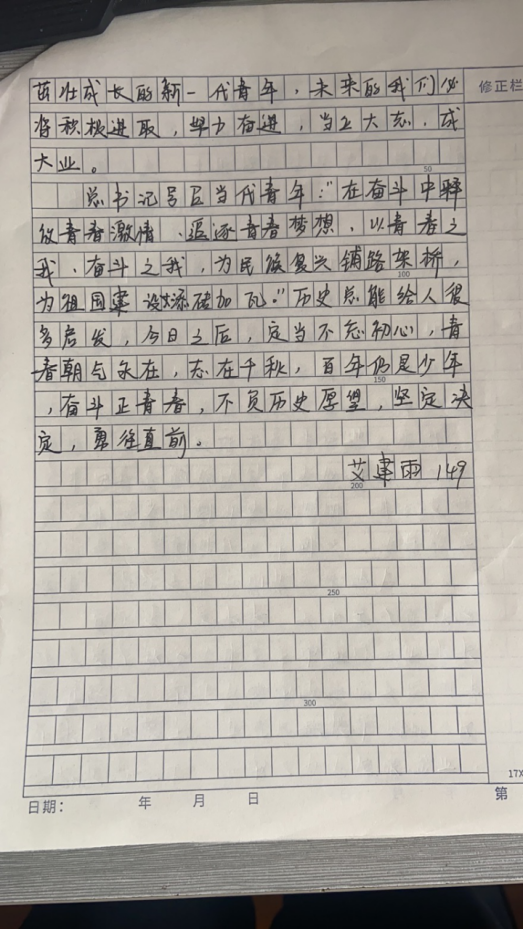 茁壮成长的新一代青年，未来的我们必
修正栏
将积极进取，努力奋进，当立大志，成
大业。
50
总书记号召当代青年："在奋斗中释
放青春激情、追逐青春梦想，以青春之
我、奋斗之我，为民族复兴铺路架桥，
100
为祖国建设添砖加瓦。"历史总能给人很
多启发，今日之后，定当不忘初心，青
春朝气永在，志在千秋，百年仍是少年
150
，奋斗正青春，不负历史厚望，坚定决
定，勇往直前。
艾建雨 149
200
250
300
17X
日期： 年 月 日 第